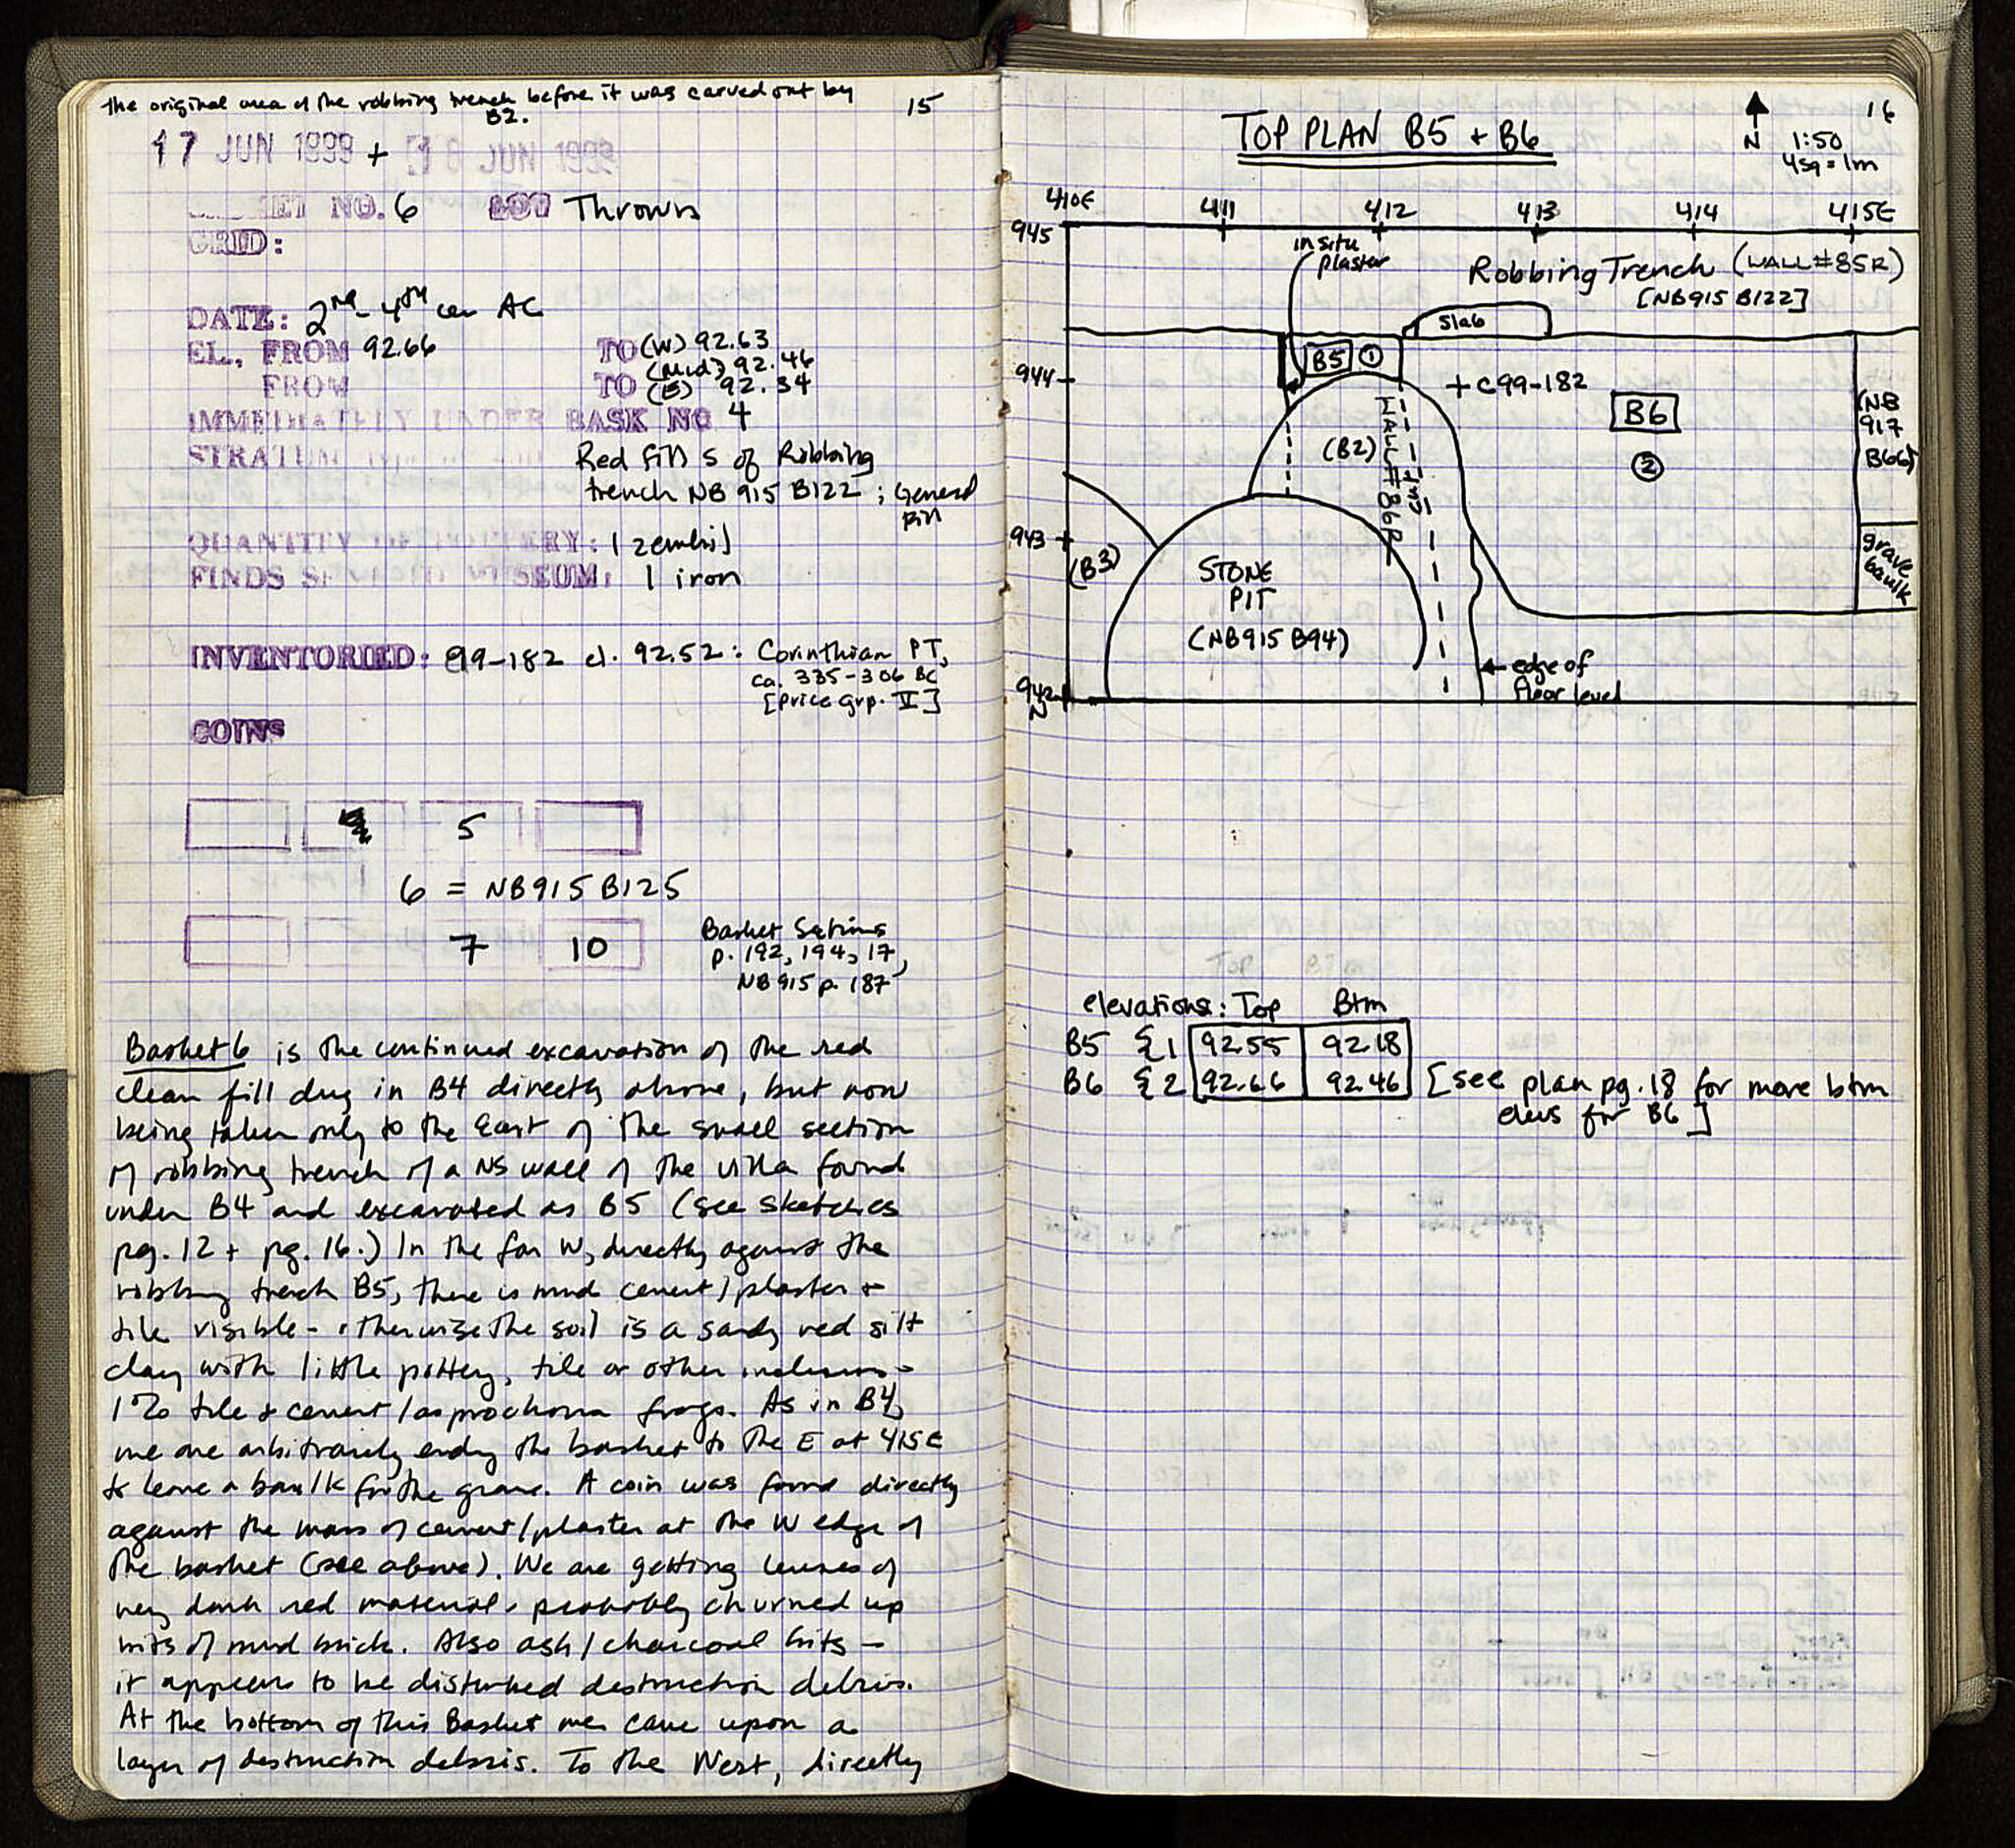 the original area of the robbing trench before it was carved out by
B2.
15
17 JUN 1999 + 18 JUN 1999
BASKET NO. 6 LOT Thrown
GRID:
DATE: 2nd - 4th cen AC
EL., FROM 92.66 TO (W) 92.63
(Mid) 92.46
FROM TO (E) 92.34
IMMEDIATELY UNDER BASK NO 4
STRATUM Red fills of Robbing
trench NB 915 B122 ; General
fill
QUANTITY OF POTTERY: 1 zembil
FINDS SENT TO MUSEUM: 1 iron
INVENTORIED: C99-182 el. 92.52: Corinthian PT,
ca. 335-306 BC
[Price Grp. V]
COINS
5
6 = NB915 B125
7 10
Basket Sections
p. 192, 194, 17,
NB 915 p. 187
Basket 6 is the continued excavation of the red
clean fill dug in B4 directly above, but now
being taken only to the East of the small section
of robbing trench of a NS wall of the villa found
under B4 and excavated as B5 (see sketches
pg. 12 + pg. 16.) In the far W, directly against the
robbing trench B5, there is mud cement/plaster +
tile visible - otherwise the soil is a sandy red silt
clay with little pottery, tile or other inclusions -
1% tile + cement/asprochoma frags. As in B4,
we are arbitrarily ending the basket to the E at 415E
to leave a baulk for the grave. A coin was found directly
against the mass of cement/plaster at the W edge of
the basket (see above). We are getting lenses of
very dark red material - probably churned up
bits of mud brick. Also ash/charcoal bits -
it appears to be disturbed destruction debris.
At the bottom of this Basket we came upon a
layer of destruction debris. To the West, directly
16
TOP PLAN B5 + B6
N
1:50
4sq = 1m
410E 411 412 413 414 415E
945
in situ
plaster
Robbing Trench (WALL #85R)
[NB915 B122]
slab
B5 1
944
+ C99-182
B6
2
(NB
917
B66)
(B2)
WALL #86R
943
(B3)
STONE
PIT
(NB915 B94)
grave
baulk
edge of
floor level
942
N
elevations: Top Btm
B5 1 92.55 92.18
B6 2 92.66 92.46 [see plan pg. 18 for more btm
elevs for B6]